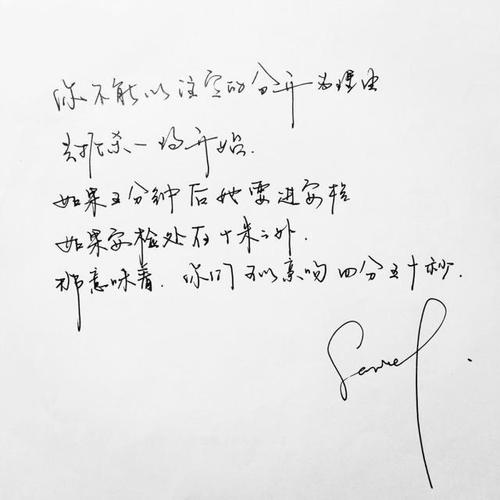 你不能以注定的分开为理由
去扼杀一场开始.
如果五分钟后她要进安检
如果安检处在十米之外.
那意味着.你们可以亲吻四分五十秒.